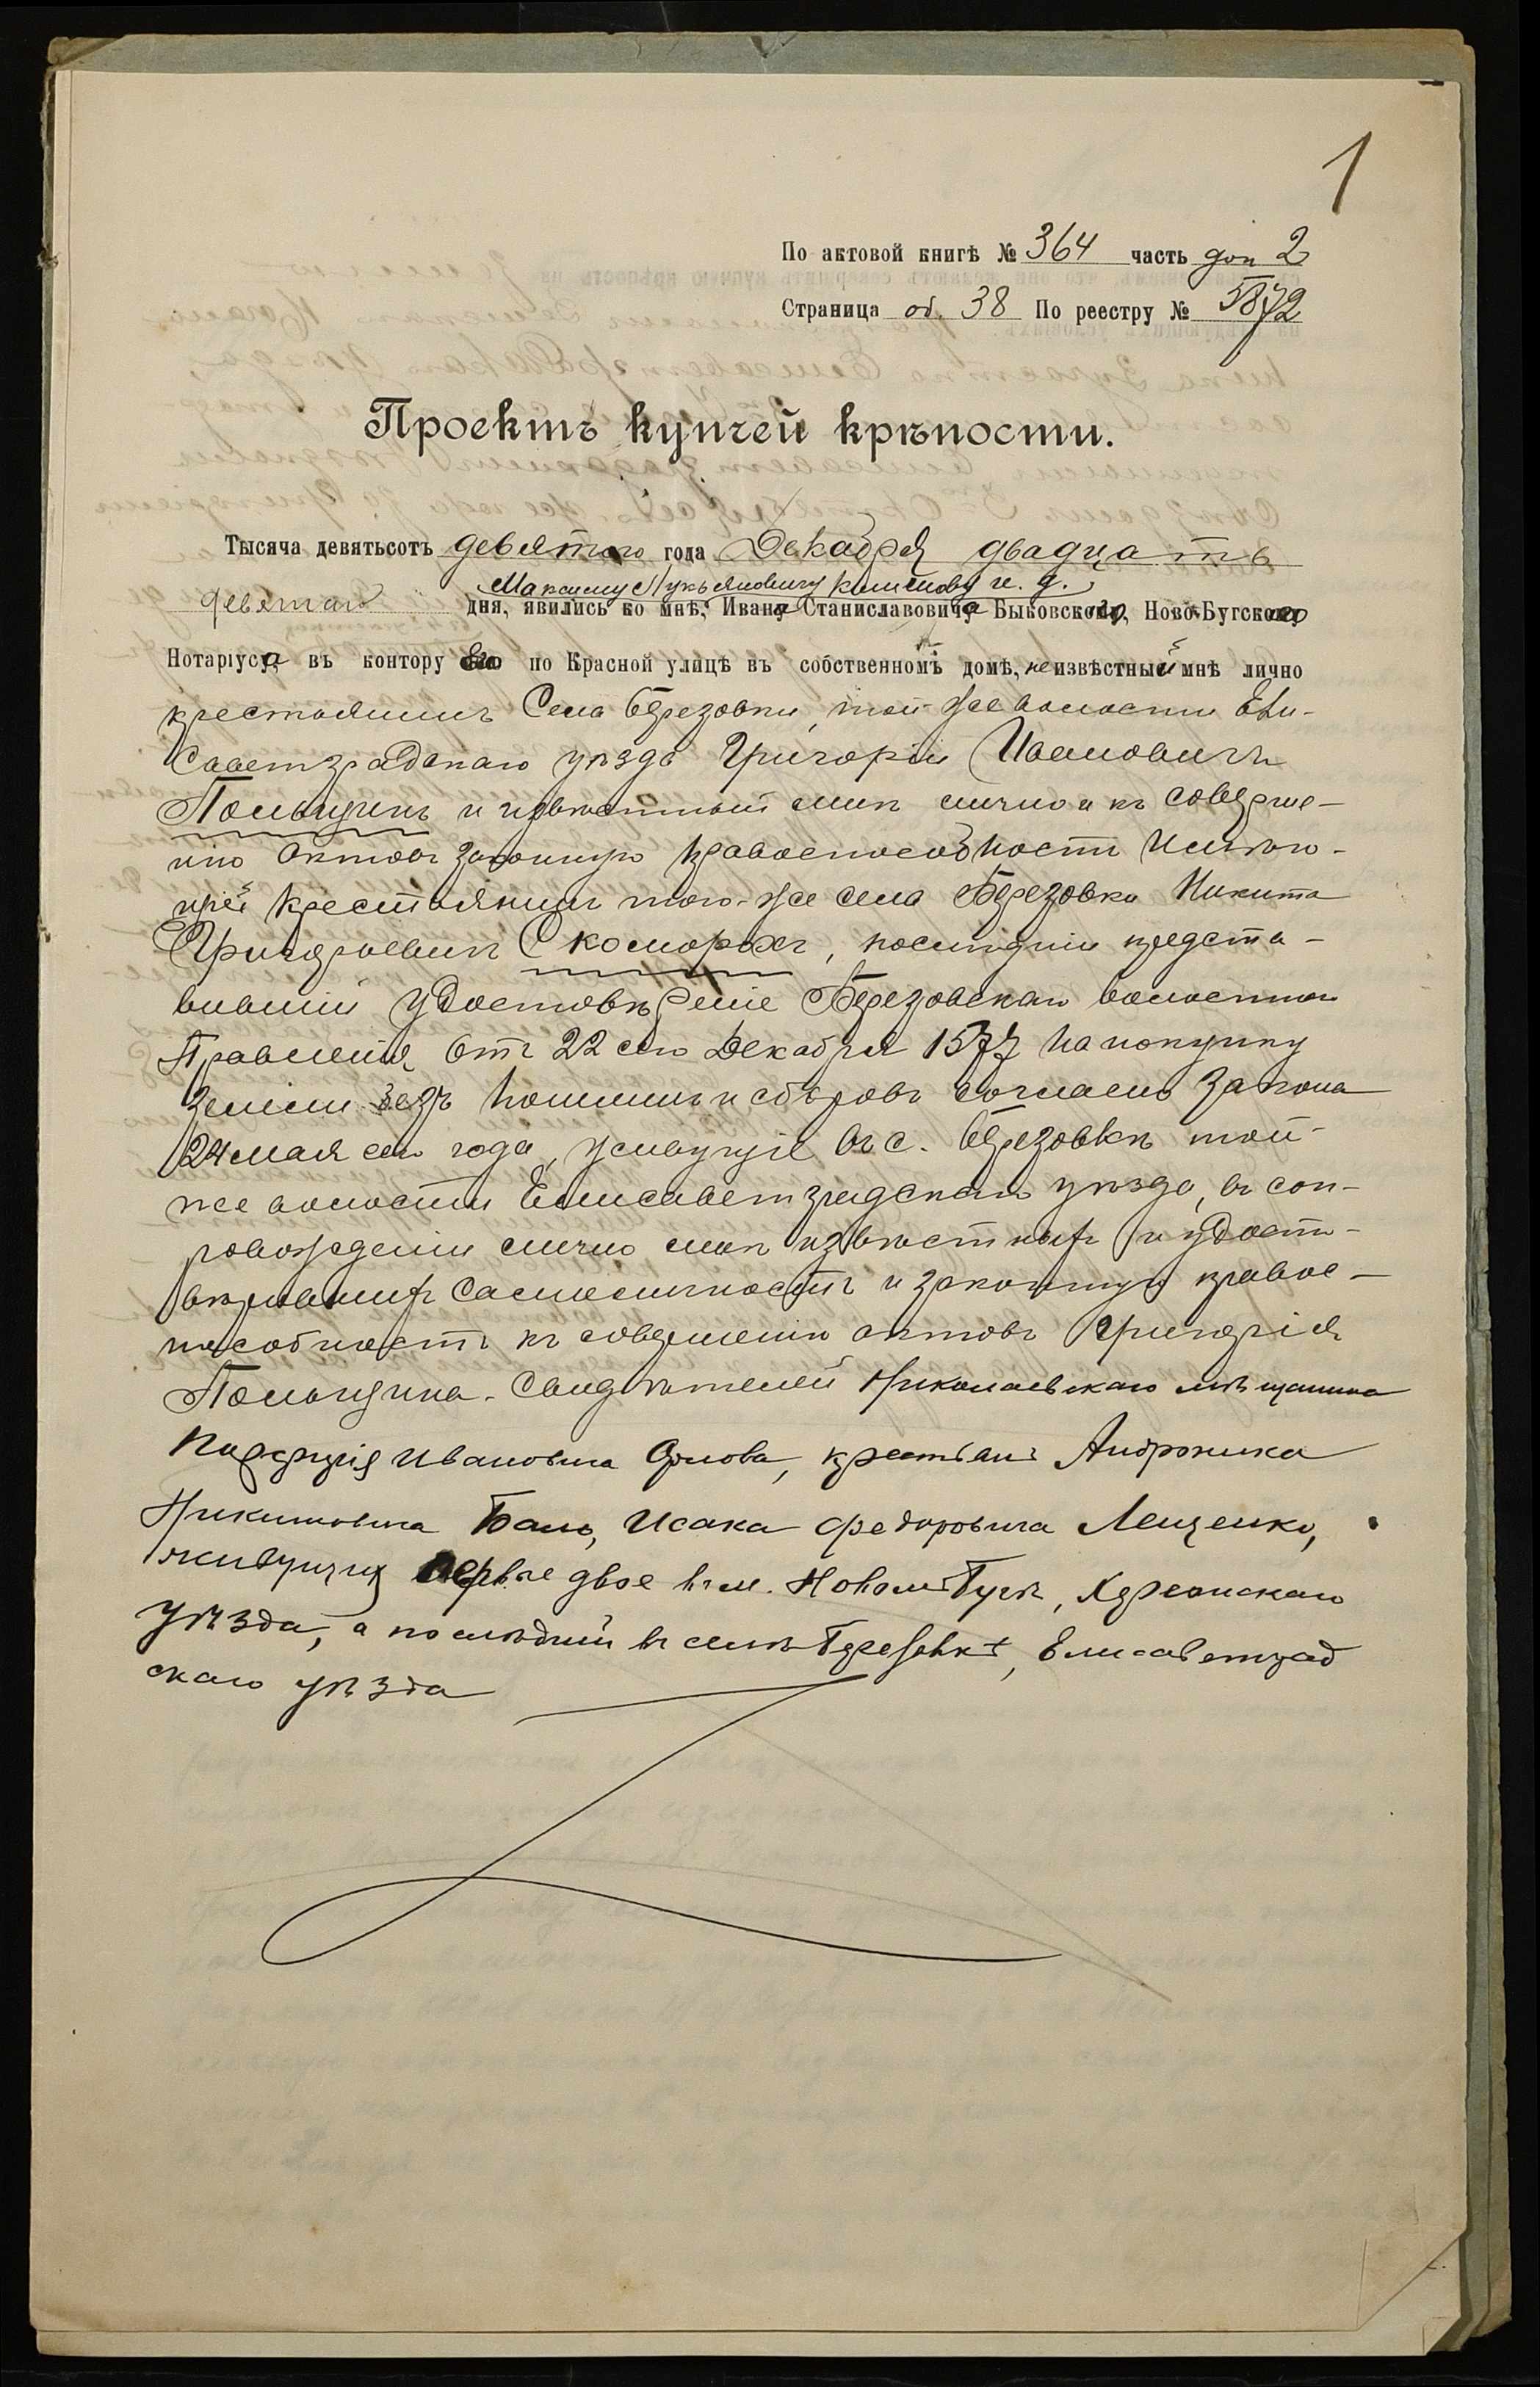 1
По актовой книгѣ № 364 часть доп 2
Страница об. 38 По реестру № 5872
Проектъ купчей крѣпости.
Тысяча девятьсотъ девятаго года Декабря двадцать
Максиму Лукьяновичу и. д.
девятаго дня, явились ко мнѣ, Ивана Станиславовича Быковскаго, Ново-Бугскаго
Нотаріуса въ контору его по Красной улицѣ въ собственномъ домѣ, неизвѣстный мнѣ лично
крестьянинъ села Березовки, той-же волости Ели-
саветградскаго уѣзда Григорій Ивановичъ
Польщинъ и извѣстный мнѣ лично и къ соверше-
нію актовъ законную правоспособность имѣю-
щій крестьянинъ того-же села Березовки Никита
Григорьевичъ Скоморохъ, послѣдній предста-
вившій удостовѣреніе Березовскаго волостнаго
Правленія отъ 22 сего Декабря 1577 на покупку
земли безъ пошлинъ и сборовъ согласно закона
24 мая сего года, живущіе въ с. Березовкѣ той-
же волости Елисаветградскаго уѣзда, въ соп-
ровожденіи лично мнѣ извѣстныхъ и удосто-
вѣрившихъ самоличность и законную правос-
пособность къ совершенію актовъ Григорія
Польщина. Свидѣтелей Николаевскаго мѣщанина
Ивановича Орлова, крестьянъ Андроника
Никитовича Бало, Исака Федоровича Лещенко,
живущихъ первые двое въ м. Новомъ Бугѣ, Херсонскаго
уѣзда, а послѣдній въ селѣ Березовкѣ, Елисаветград
скаго уѣзда